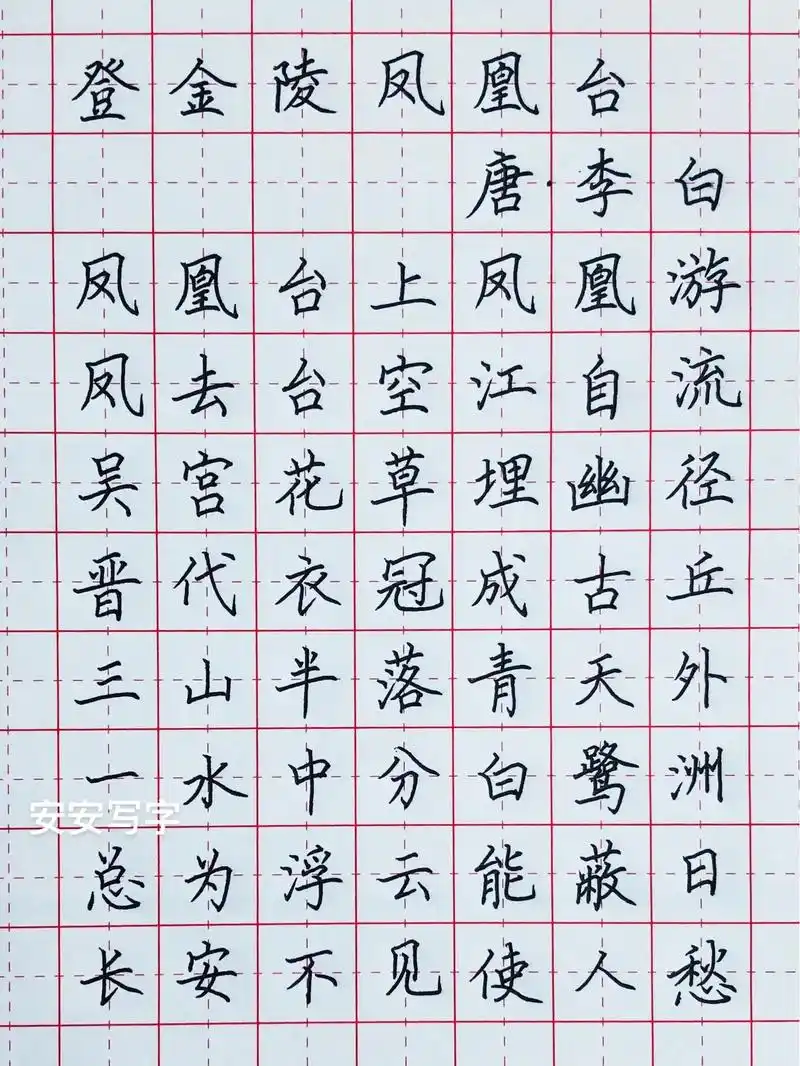 登金陵凤凰台
唐·李白
凤凰台上凤凰游
凤去台空江自流
吴宫花草埋幽径
晋代衣冠成古丘
三山半落青天外
一水中分白鹭洲
安安写字
总为浮云能蔽日
长安不见使人愁